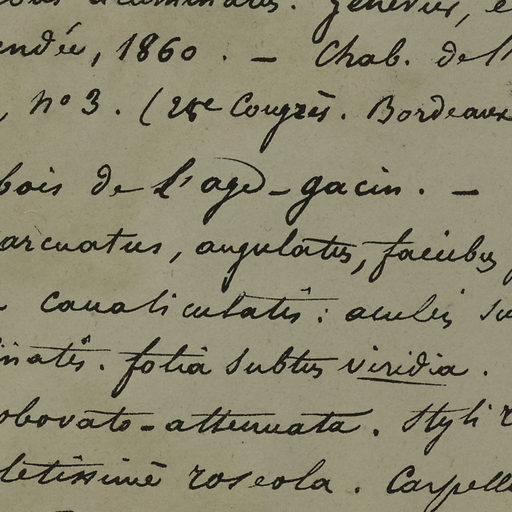 acuminatis. Genevier, e
endée, 1860. – Chab. de l'
, n° 3. (28e Congrès. Bordeaux
bois de l'age-gacin. –
arcuatus, angulatus, faciebus
canaliculatis: aculeis su
inatis. folia subtus viridia.
obovato-attenuata. Styli r
letissimè roseola. Carpell